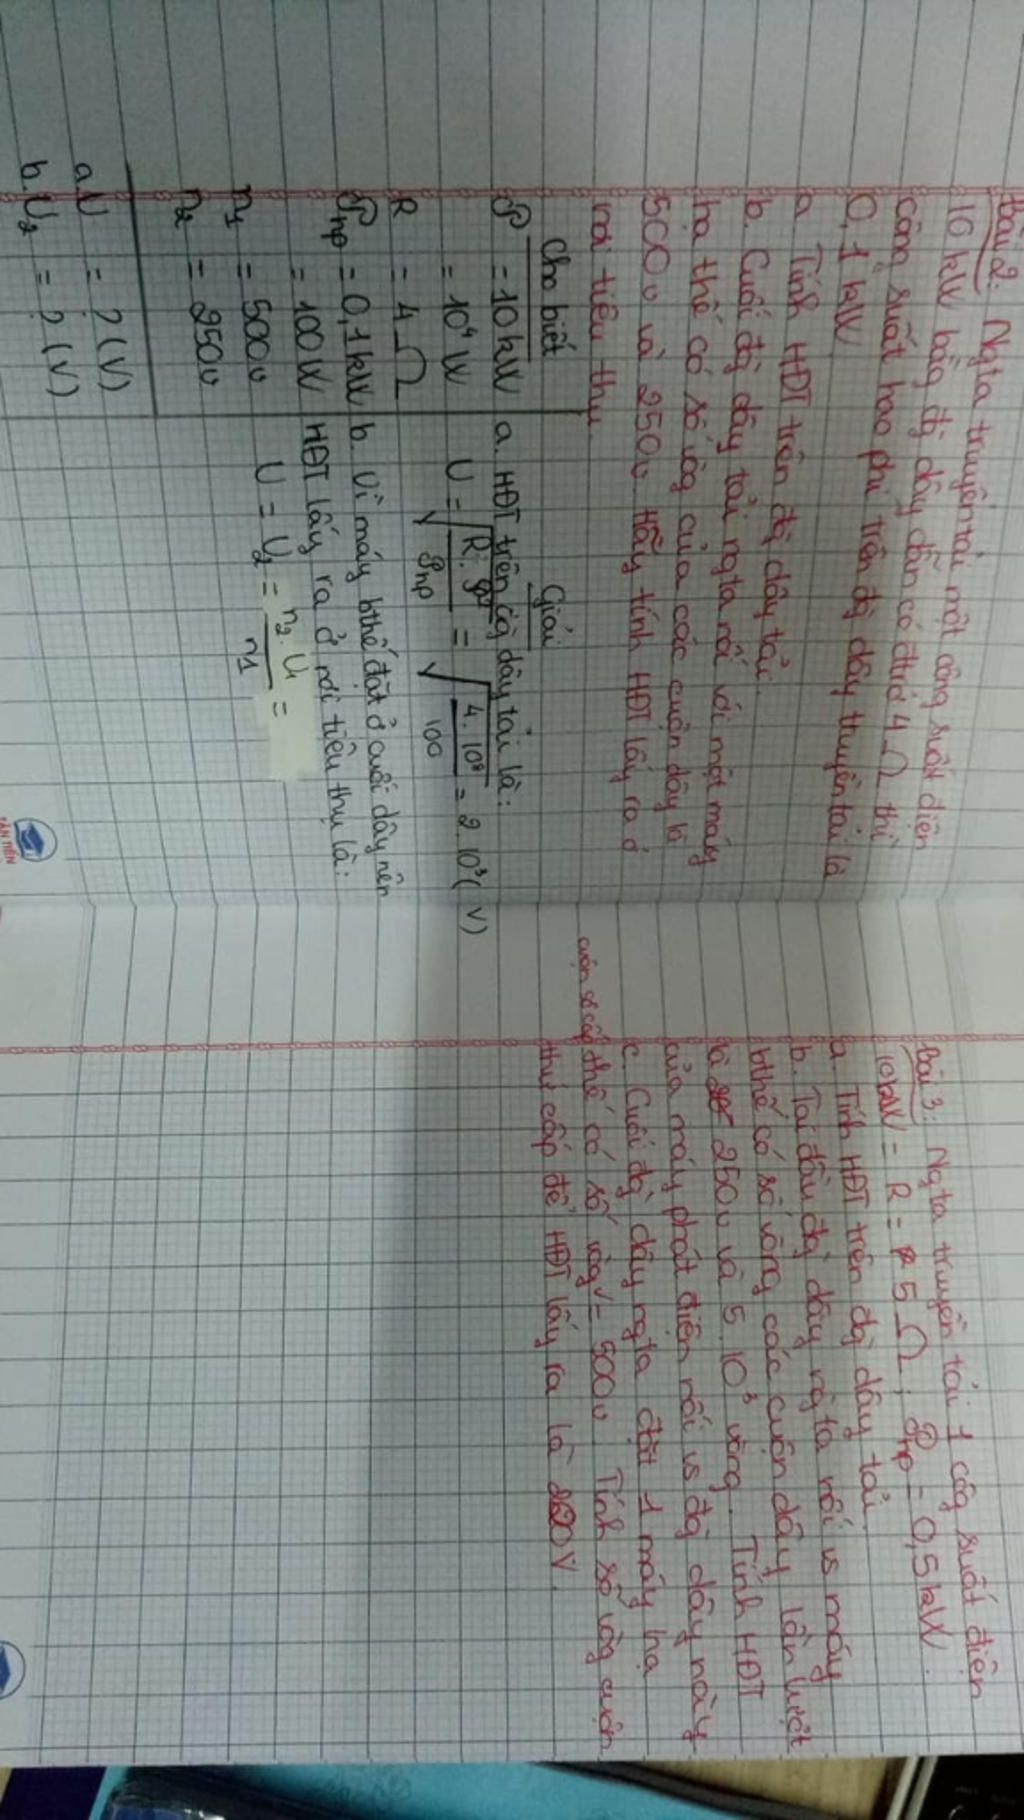 Bài 2: Ngta truyền tải một công suất điện
10 kW bằng đg dây dẫn có đtrở 4 Ω thì
công suất hao phí trên đg dây truyền tải là
0,1 kW
a. Tính HĐT trên đg dây tải.
b. Cuối đg dây tải ngta nối với một máy
hạ thế có số vòg của các cuộn dây là
500v và 250v. Hãy tính HĐT lấy ra ở
nơi tiêu thụ.
Cho biết
P = 10 kW
= 10⁴ W
R = 4 Ω
Php = 0,1 kW
= 100W
n1 = 500v
n2 = 250v
a. U = ? (V)
b. U2 = ? (V)
Giải
a. HĐT trên đg dây tải là:
U = √(R.P²/Php) = √(4.10⁸/100) = 2.10³ (V)
b. Vì máy bthế đặt ở cuối dây nên
HĐT lấy ra ở nơi tiêu thụ là:
U = U2 = n2.U1/n1 =
TÂN TIẾN
Bài 3: Ngta truyền tải 1 côg suất điện
10kW = R = 5 Ω; Php = 0,5kW.
a. Tính HĐT trên đg dây tải
b. Tại đầu đg dây ngta nối vs máy
bthế có số vòng các cuộn dây lần lượt
là 250v và 5.10³ vòng. Tính HĐT
của máy phát điện nối vs đg dây này
c. Cuối đg dây ngta đặt 1 máy hạ
cuộn sơ cấp
thế có số vòg = 500v. Tính số vòg cuộn
thứ cấp để HĐT lấy ra là 220V.